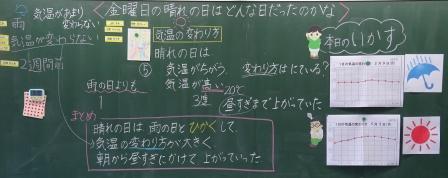 金曜日の晴れの日はどんな日だったのかな
雨
気温があまり
変わらない
気温が変わらない
2週間前
気温の変わり方
晴れの日は
⑤
気温がちがう。変わり方はにている？
雨の日よりも
気温が高い 20℃
昼すぎまで上がっていた
まとめ
晴れの日は雨の日とひかくして、
気温の変わり方が大きく、
朝から昼すぎにかけて上がっていった
本日のいかす